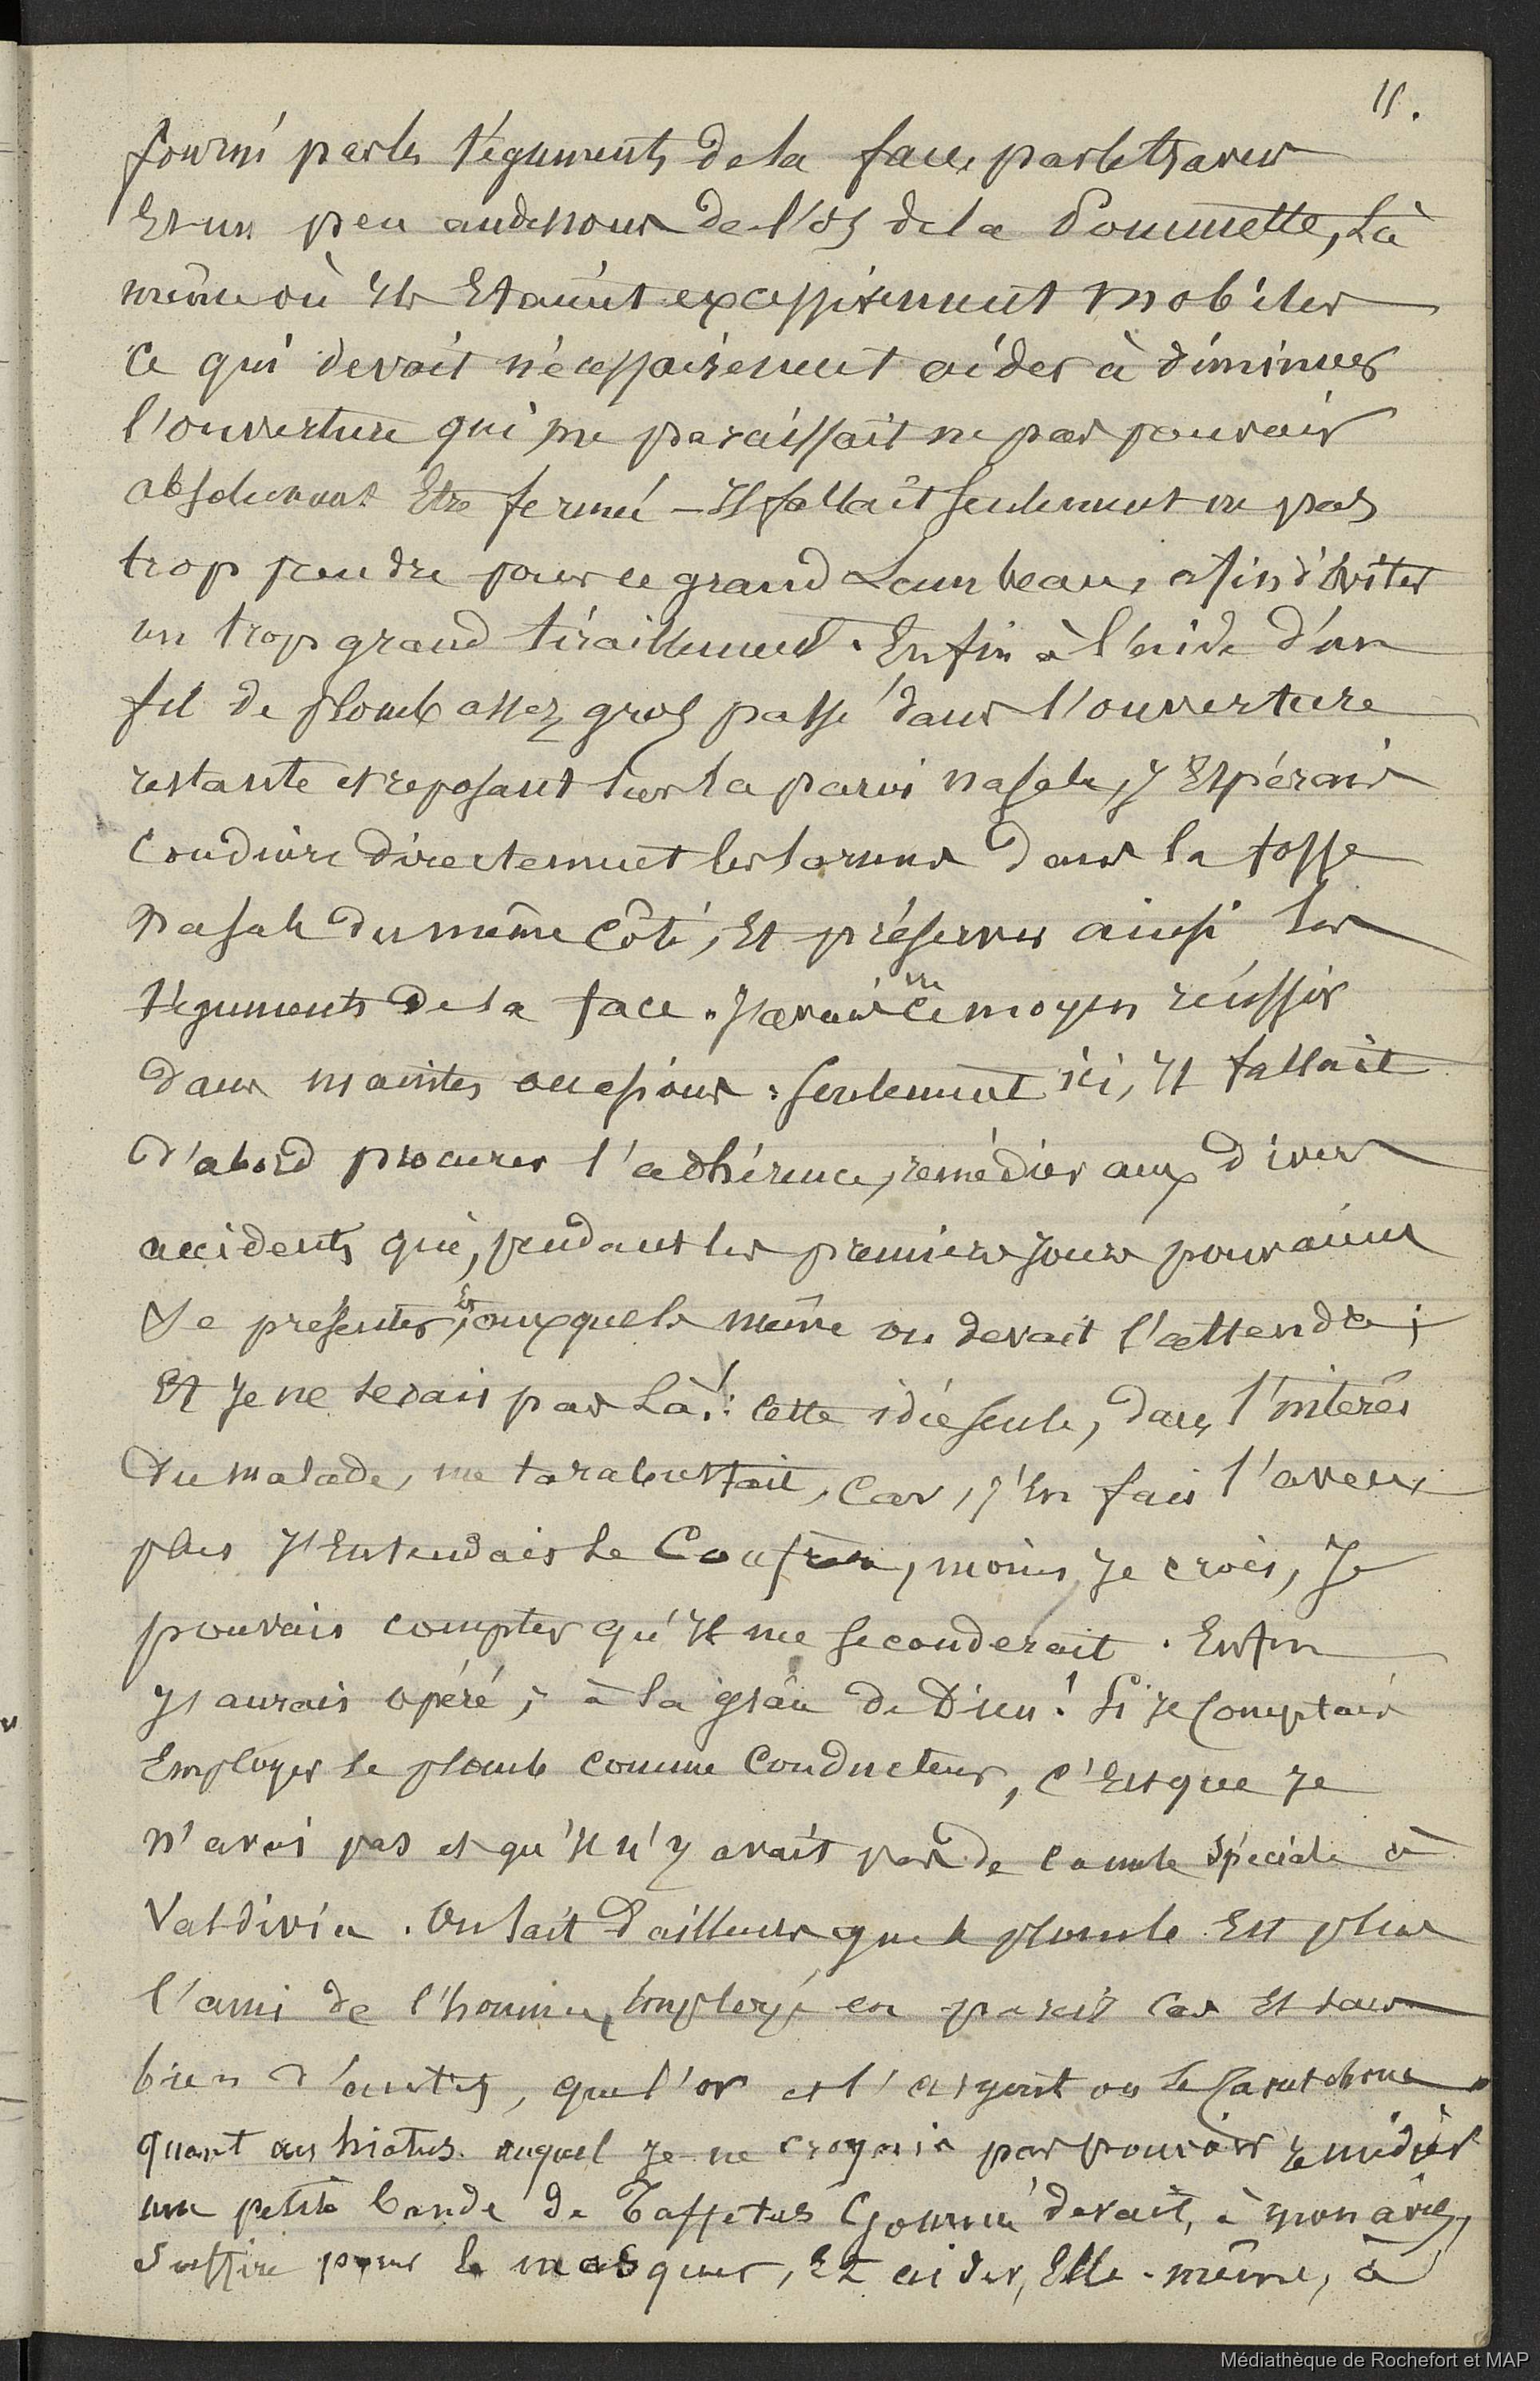 11.
fourni par les téguments de la face, par le travers
Et un peu audessous de l'os de la Pommette, Là
même où Ils Etaient excessivement mobiles
Ce qui devait nécessairement aider à diminuer
l'ouverture qui me paraissait ne pas pouvoir
absolument Etre fermé – Il fallait seulement ne pas
trop prendre pour ce grand Lambeau, afin d'Eviter
un trop grand tiraillement. Enfin à l'aide d'un
fil de plomb assez gros passé dans l'ouverture
restante et reposant sur la paroi nasale, J'Espérais
Conduire directement les larmes dans la fosse
Nasale du même Côté, Et préserver ainsi les
téguments de la face. J'avais vu ce moyen réussir
dans maintes occasions. Seulement ici, Il fallait
d'abord procurer l'adhérence, remédier aux divers
accidents qui, pendant les premiers Jours pouvaient
Se présenter, Et auxquels même on devait s'attendre;
Et Je ne serais pas Là! : Cette idée seule, dans l'intérêt
du malade, me tarabustait, Car, J'En fais l'aveu,
plus J'Entendais le Confrère, moins, Je crois, Je
pouvais compter qu'Il me seconderait. Enfin
J'aurais opéré, à la grâce de Dieu! Si Je Comptais
Employer le plomb comme Conducteur, C'Est que Je
n'avais pas et qu'Il n'y avait pas de canule spéciale à
Valdivia. On sait d'ailleurs que le plomb Est plus
l'ami de l'homme, Employé en pareil Cas Et dans
bien d'autres, que l'or et l'argent ou le Caoutchouc
quant au hiatus auquel Je ne croyais pas pouvoir remédier
une petite bande de Taffetas Gommé devait, à mon avis,
Suffire pour le masquer, Et aider, Elle-même, à
Médiathèque de Rochefort et MAP